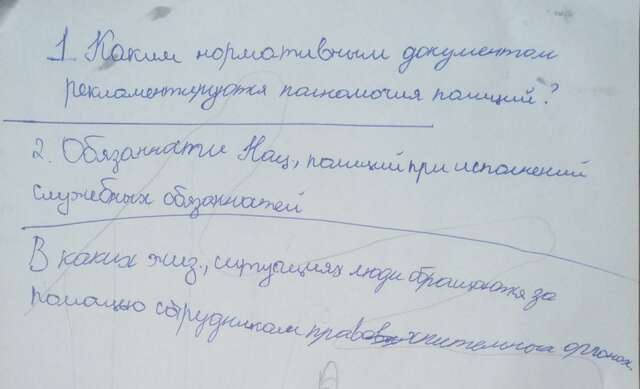 1. Каким нормативным документом
рекламентируются полномочия полиций?
2. Обязанности Нац, полиций при исполнений
служебных обязанностей
В каких жиз., ситуациях люди обращаются за
помощью сотрудникам правоохнительных органах